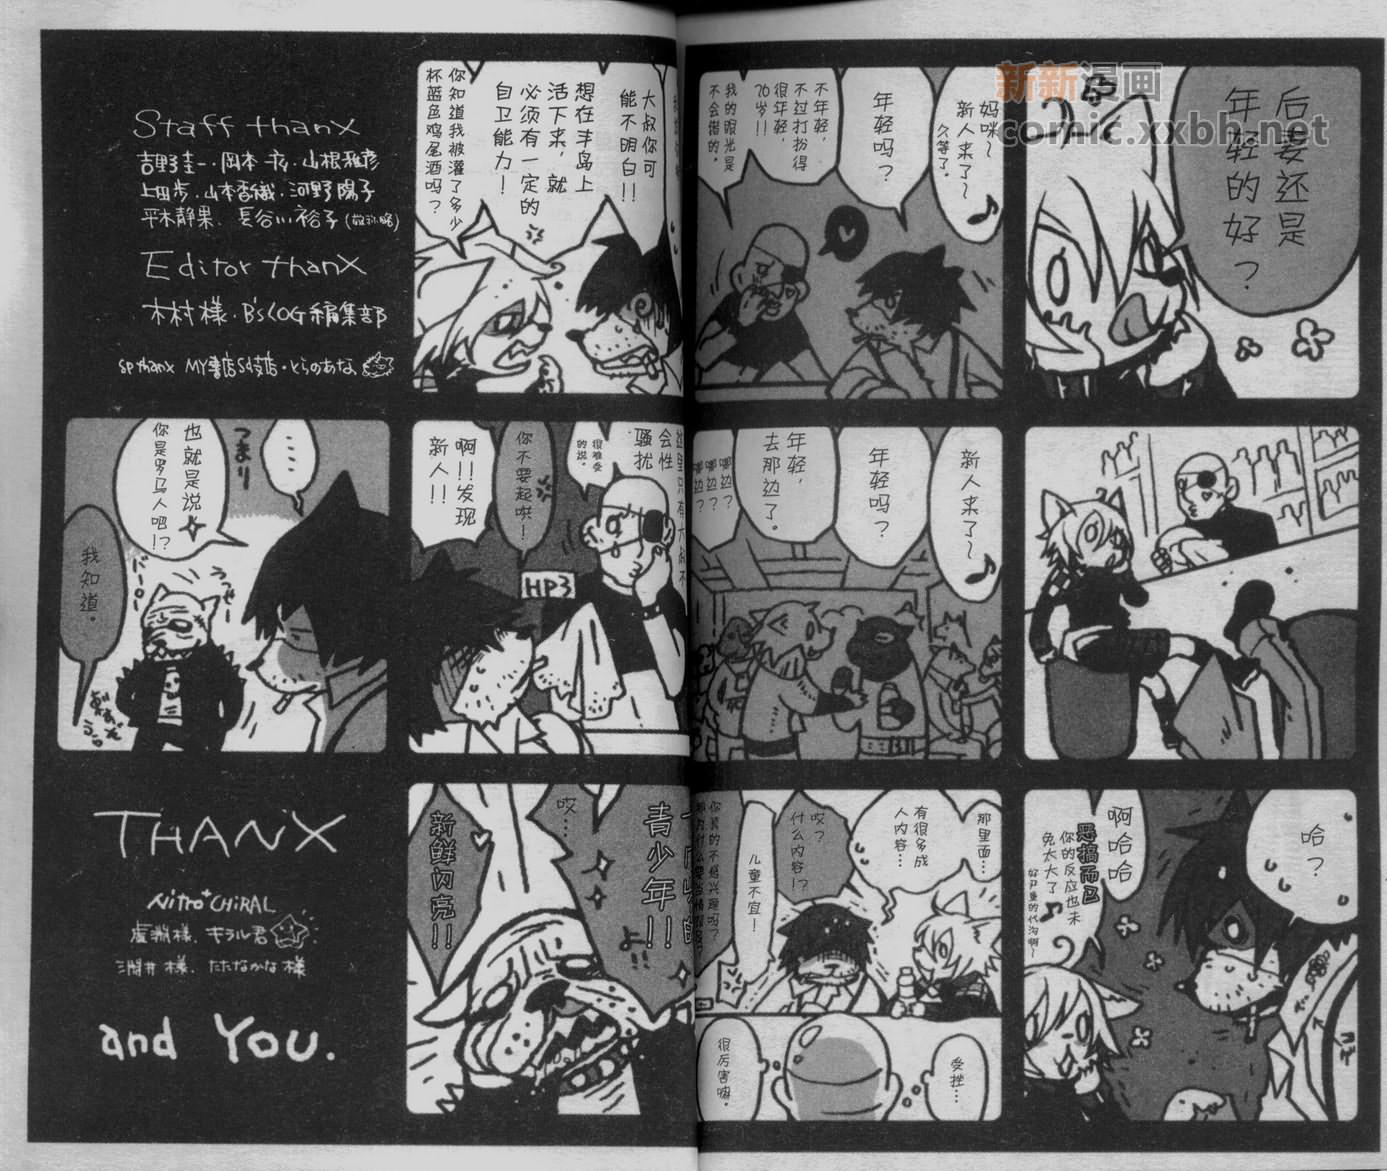 新新漫画
comic.xxbh.net
后妻还是
年轻的好？
妈咪～
新人来了～
久等了。
年轻吗？
不年轻，
不过打扮得
很年轻，
70岁！！
我的眼光是
不会错的。
大叔你可
能不明白！！
想在丰岛上
活下来，就
必须有一定的
自卫能力！
你知道我被灌了多少
杯蓝色鸡尾酒吗？
Staff thanX
Editor thanX
木村様・B'sLOG編集部
SP thanx MY書店Sd支店・とらのあな
新人来了～
年轻吗？
年轻，
去那边了。
哪边？
哪边？
哪边？
这里只有大叔不
会性
骚扰
很难受
的说。
你
不要起哄！
啊！！发现
新人！！
HP3
…
つまり
也就是说
你是罗马人吧！？
我知道。
哈？
啊哈哈
恶搞而已
你的反应也未
免太大了
好严重的代沟啊～
那里面…
有很多成
人内容…
哎？
什么内容！？
儿童不宜！
受挫…
很厉害嘛。
青少年！！
よ！！
哎…
新鲜闪亮！！
THANX
Nitro+CHiRAL
虚淵様、キラル君
淵井様、たたなかな様
and YOU.